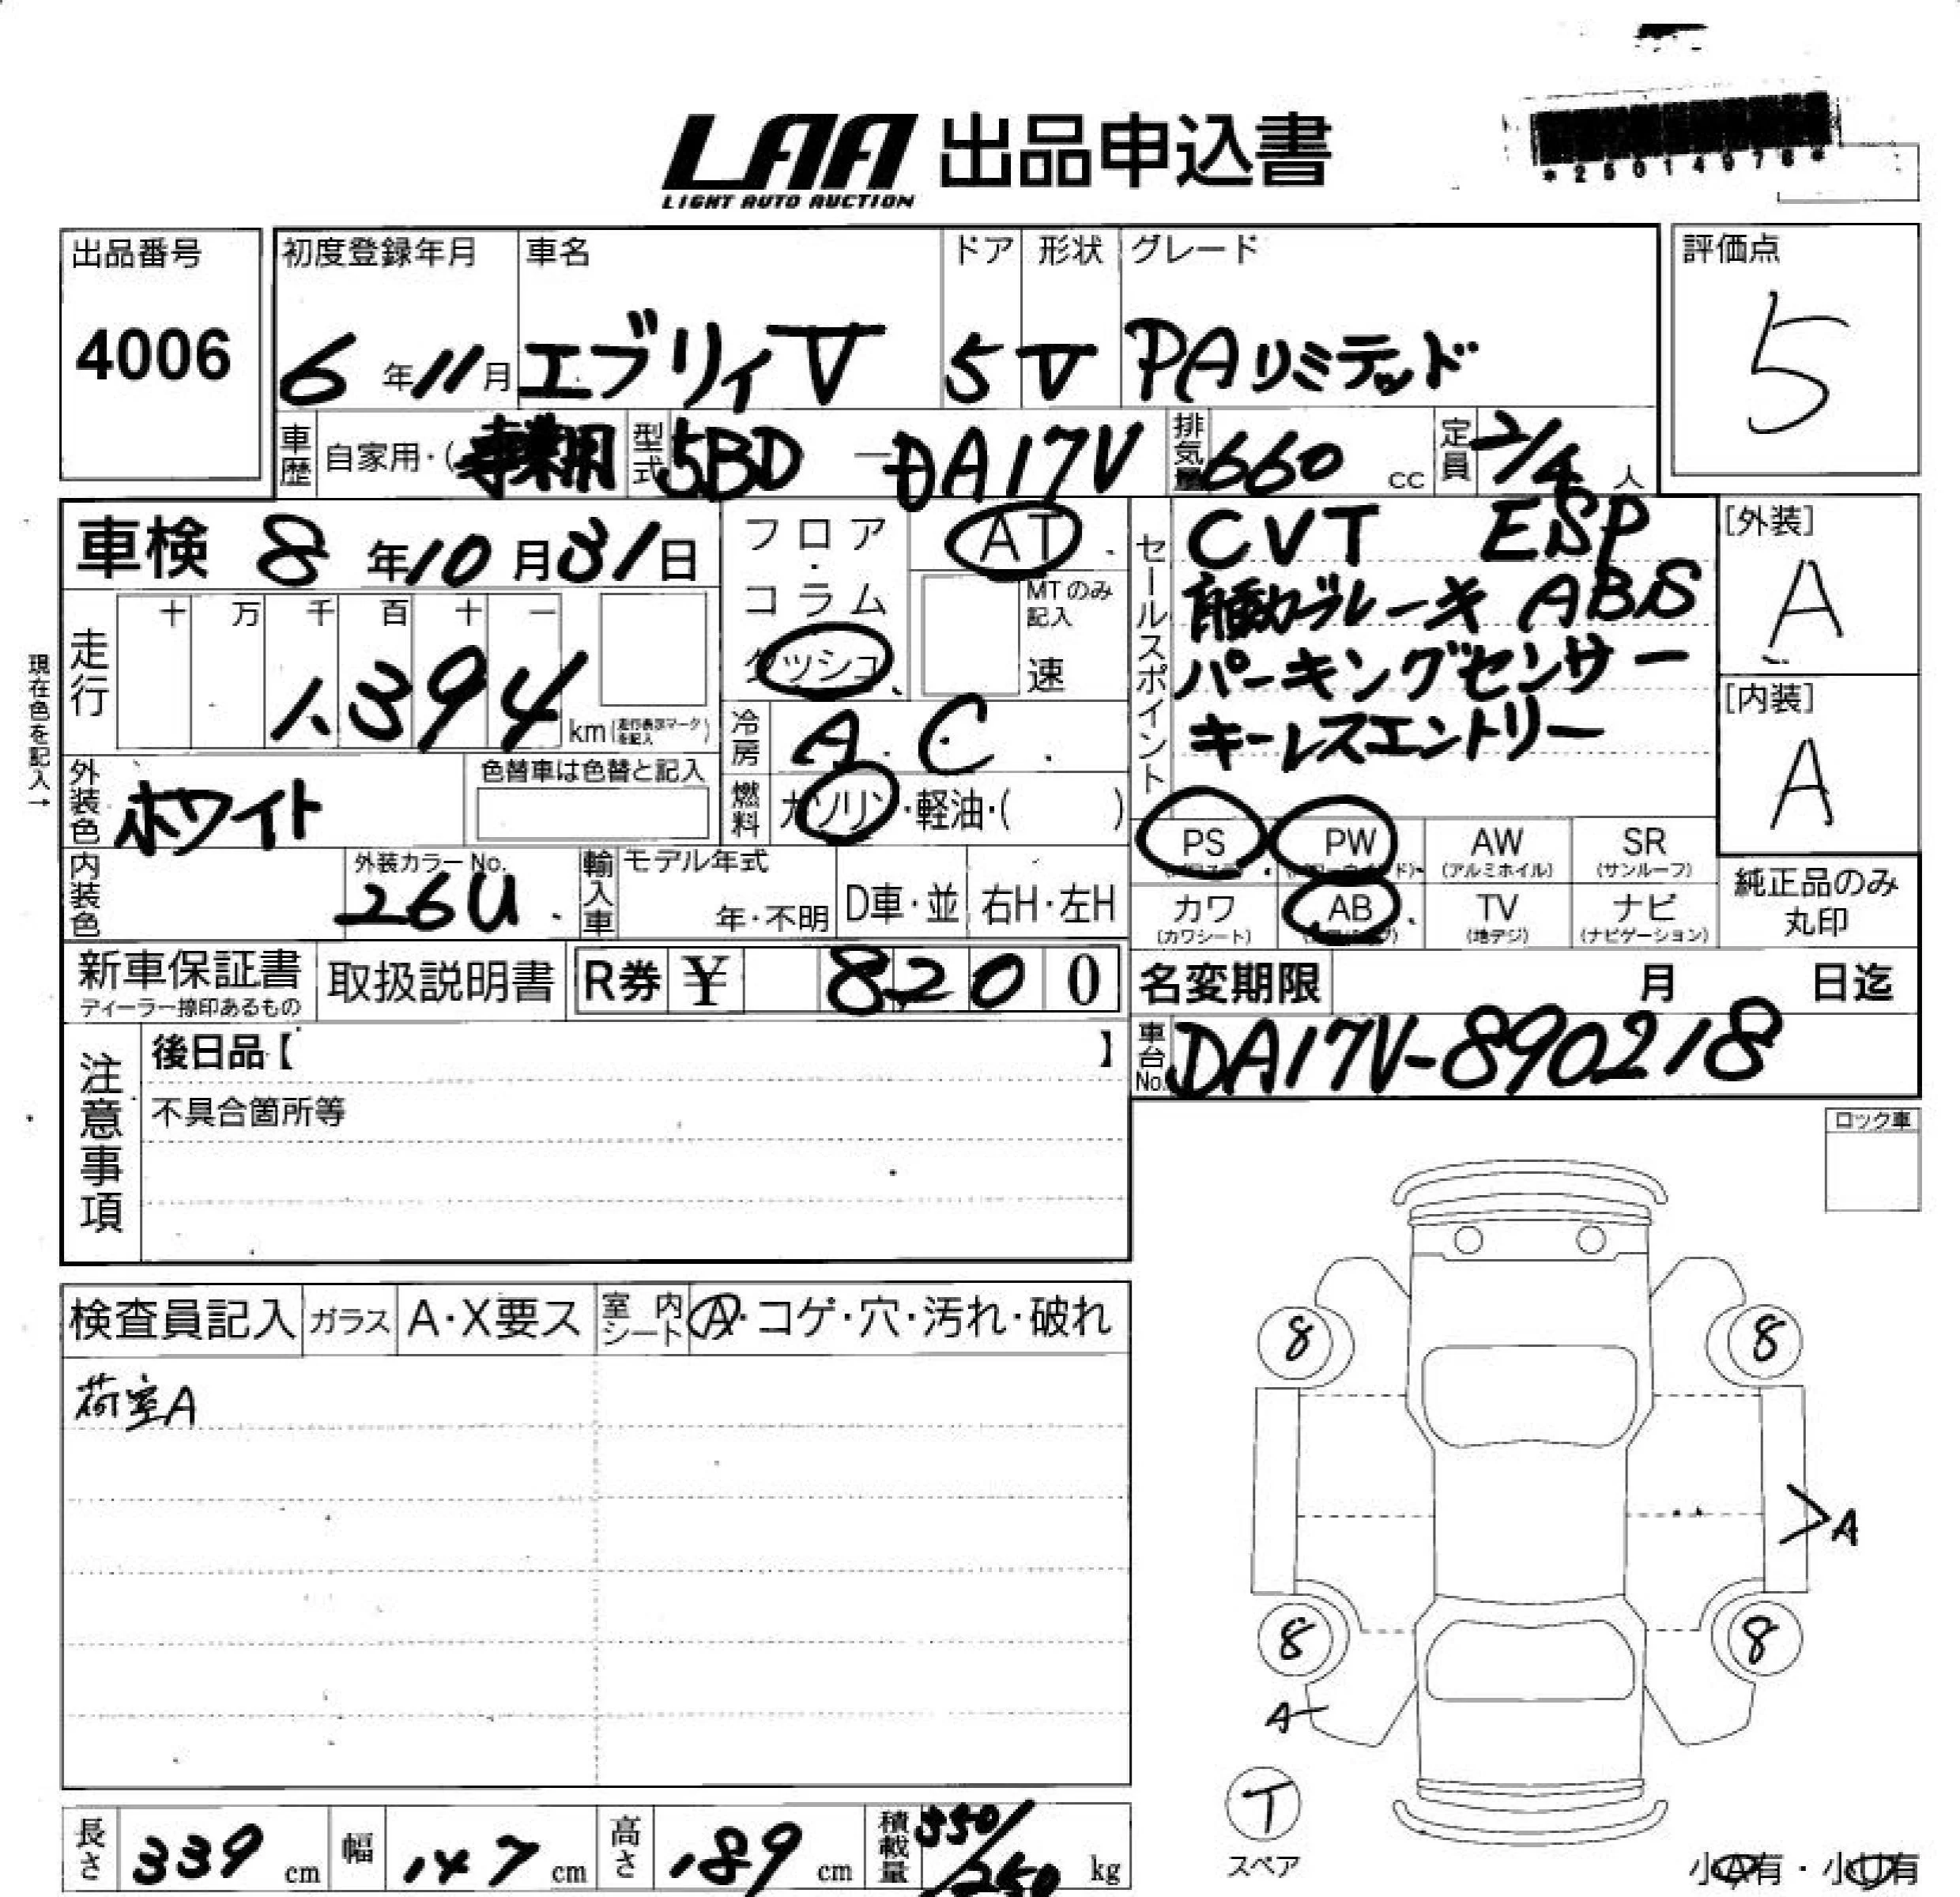 LAA 出品申込書
LIGHT AUTO AUCTION
*25014978*
出品番号
4006
初度登録年月
6年11月
車名
エブリィV
ドア
5
形状
V
グレード
PAリミテッド
評価点
5
車歴
自家用・(事業用
型式
5BD-DA17V
排気量
660cc
定員
2/4人
車検 8年10月31日
フロア・コラム
ダッシュ
AT
MTのみ記入
速
セールスポイント
CVT ESP
自動ブレーキ ABS
パーキングセンサー
キーレスエントリー
[外装]
A
[内装]
A
現在色を記入→
走行
十 万 千 百 十 一
1,394
km(走行表示マークを記入)
冷房
A.C
外装色
ホワイト
色替車は色替と記入
燃料
ガソリン・軽油・( )
PS
PW
AW
(アルミホイル)
SR
(サンルーフ)
内装色
外装カラーNo.
26U
輸入車
モデル年式
年・不明
D車・並
右H・左H
カワ
(カワシート)
AB
TV
(地デジ)
ナビ
(ナビゲーション)
純正品のみ
丸印
新車保証書
ディーラー捺印あるもの
取扱説明書
R券 ¥ 8200
名変期限 月 日迄
車台No.
DA17V-890218
注意事項
後日品【 】
不具合箇所等
ロック車
検査員記入
ガラス
A・X要ス
室内シート
A・コゲ・穴・汚れ・破れ
荷室A
8
8
A
8
8
A
T
スペア
長さ 339 cm
幅 147 cm
高さ 189 cm
積載量 350/250 kg
小A有・小U有